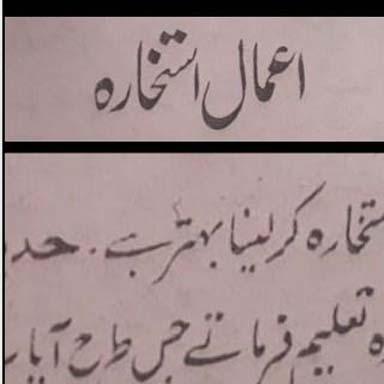 اعمال استخارہ
ستخارہ کرلینا بہتر ہے۔ حد
ہ تعلیم فرماتے جس طرح آیا